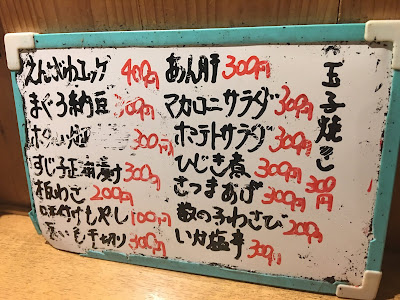 玉子焼き 300円
あん肝 300円
マカロニサラダ 300円
ポテトサラダ 300円
ひじき煮 300円
さつまあげ 300円
数の子わさび 200円
いか塩辛 300円
えんがわエッグ 400円
まぐろ納豆 300円
300円
すじ子正油漬け 300円
板わさ 200円
味付けもやし 100円
長いも千切り 300円